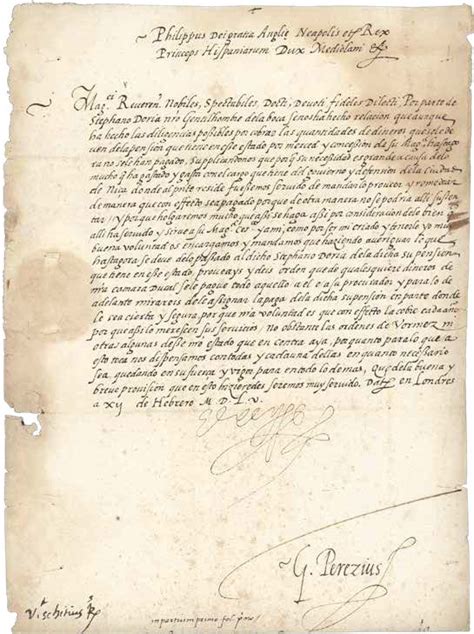 Philippus Dei gratia Anglie Neapolis etc Rex
Princeps Hispaniarum Dux Mediolani etc
Mag.ci Reveren. Nobiles, Spectabiles, Docti, Devoti fideles Dilecti, Por parte de
Stephano Doria nro Gentilhombre dela boca senosha hecho relacion que aunque
ha hecho las diligencias posibles por cobrar las quantidades de dineros que sele de
ven dela pension que tiene en esse estado por merced y concession de su Mag. hasta
ra no selehan pagado, Supplicandonos que
mucho q ha gastado y gasta con el cargo que tiene del govierno y defension dela ciudad
de Niça donde al pnte reside fuessemos servido de mandarlo proveer y remediar
de manera que con effecto sea pagado porque de otra manera no se podria alli susten
tar, y porque holgaremos mucho que assi se haga assi por consideracion delo bien q
alli ha servido y sirve a su Mag. Ces. y a mi, como por ser mi criado y tenerle yo muy
buena voluntad os encargamos y mandamos que haciendo averiguar lo que
hastagora se deve delo passado al dicho Stephano Doria dela dicha su pension
que tiene en esse estado, proveays y deis orden que de qualesquiere dineros de
mi camara Ducal sele pague todo aquello a el o a su procurador y para lo de
adelante mirareis dele assignar la paga dela dicha su pension en parte donde
le sea cierta y segura, por que mi voluntad es que con effecto la cobre cada año
por que assi lo merescen sus servicios, No obstante las ordenes de Vormez
otras algunas desse mi estado que en contra aya, porquanto para lo que a
esto toca nos dispensamos con todas y cadauna dellas en quanto necessario
sea, quedando en su fuerza y vigor para en todo lo demas, Que dela buena y
breve provision que en esto hiziéredes seremos muy servido. Dat. en Londres
a xij de Hebrero M. D. L. V.
G. Perezius
V. Schitius